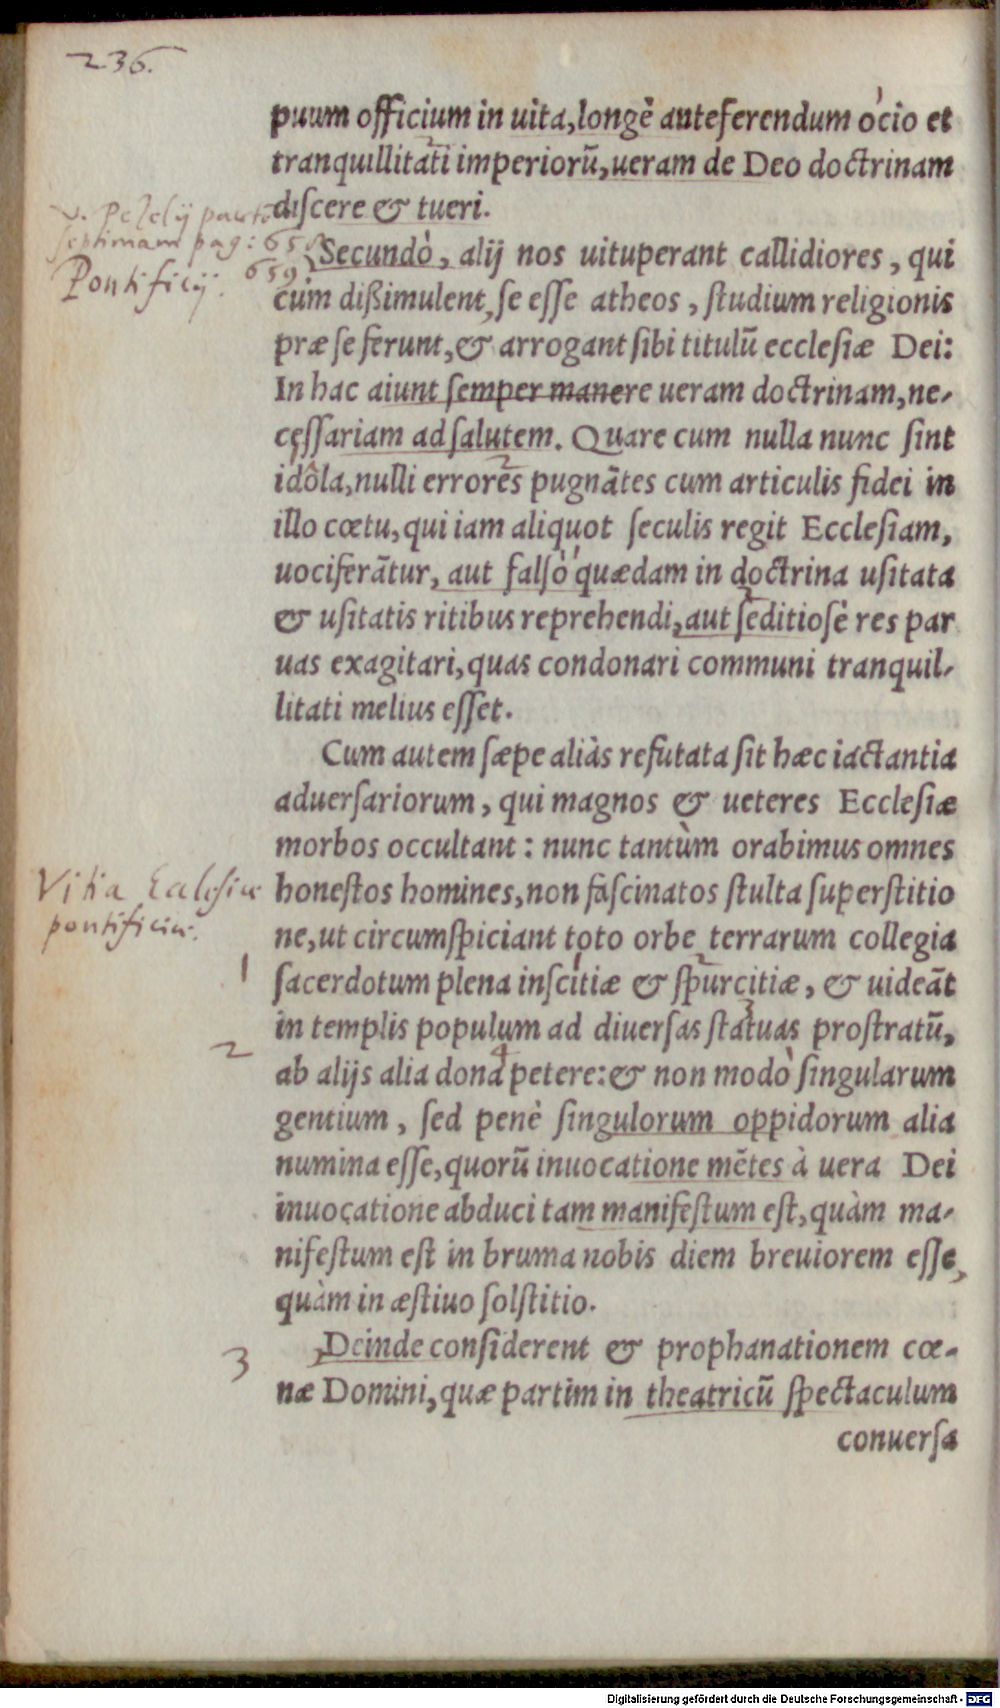 236.
puum officium in uita, longè anteferendum ocio et
tranquillitati imperiorũ, ueram de Deo doctrinam
discere & tueri.
v. Pezelij
septimam pag: 658
659
Pontificij.
Secundò, alij nos uituperant callidiores, qui
cùm dißimulent, se esse atheos, studium religionis
præ se ferunt, & arrogant sibi titulũ ecclesiæ Dei:
In hac aiunt semper manere ueram doctrinam, ne-
cessariam ad salutem. Quare cum nulla nunc sint
idôla, nulli errores pugnãtes cum articulis fidei in
illo cœtu, qui iam aliquot seculis regit Ecclesiam,
uociferãtur, aut falsò quædam in doctrina usitata
& usitatis ritibus reprehendi, aut seditiosè res par
uas exagitari, quas condonari communi tranquil-
litati melius esset.
Cum autem sæpe aliàs refutata sit hæc iactantia
aduersariorum, qui magnos & ueteres Ecclesiæ
morbos occultant: nunc tantùm orabimus omnes
Vitia Ecclesiæ
pontificiæ.
honestos homines, non fascinatos stulta superstitio
ne, ut circumspiciant toto orbe terrarum collegia
1
sacerdotum plena inscitiæ & spurcitiæ, & uideãt
in templis populum ad diuersas statuas prostratũ,
2
ab alijs alia dona petere: & non modò singularum
gentium, sed penè singulorum oppidorum alia
numina esse, quorũ inuocatione mẽtes à uera Dei
inuocatione abduci tam manifestum est, quàm ma-
nifestum est in bruma nobis diem breuiorem esse,
quàm in æstiuo solstitio.
3
Deinde considerent & prophanationem cœ-
næ Domini, quæ partim in theatricũ spectaculum
conuersa
Digitalisierung gefördert durch die Deutsche Forschungsgemeinschaft - DFG